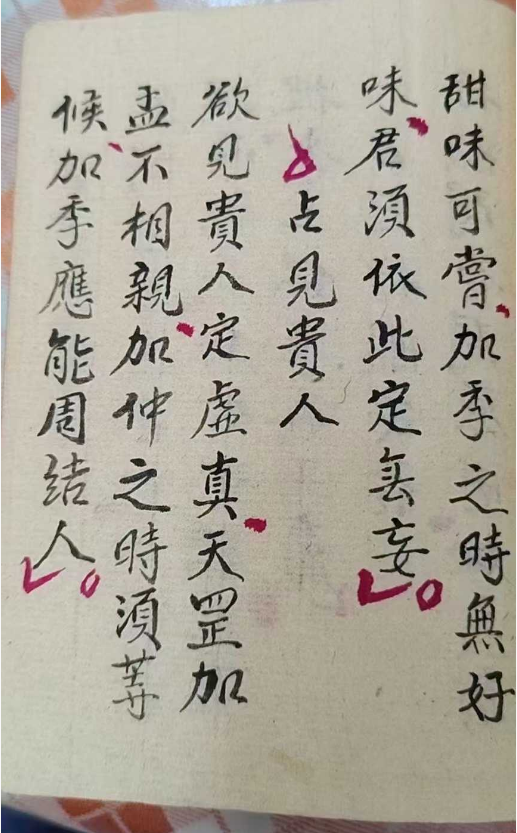 甜味可嘗加季之時無好
味君須依此定無妄
占見貴人
欲見貴人定虛真天罡加
孟不相親加仲之時須等
候加季應能周結人